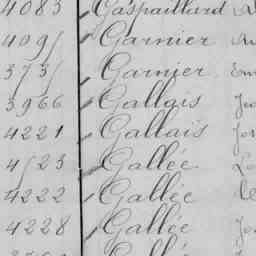 4083 Gaspaillard
4091 Garnier
3731 Garnier
3966 Gallais
4221 Gallais
4123 Gallée
4222 Gallée
4228 Gallée